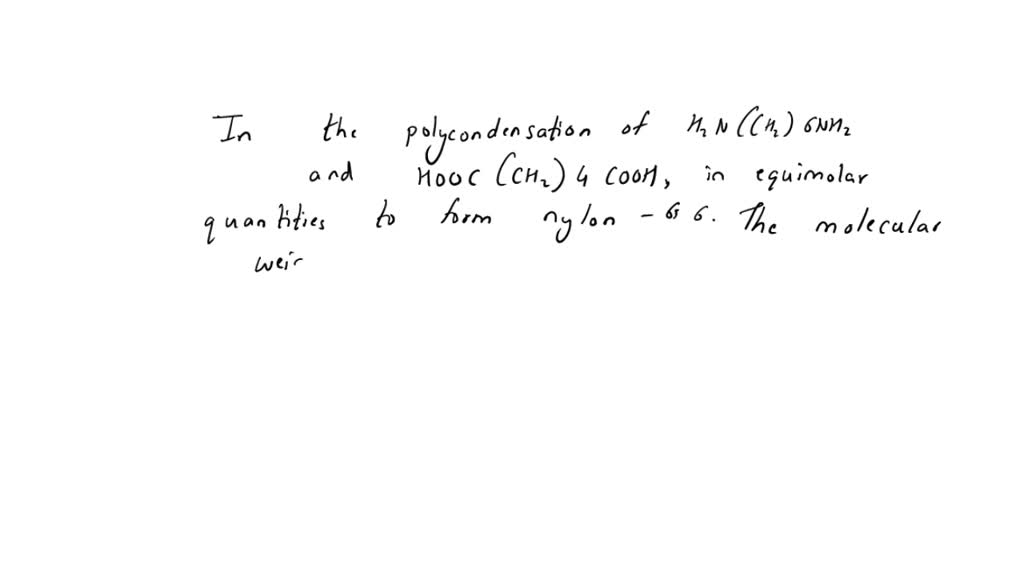 In the polycondensation of H₂N(CH₂)6NH₂
and HOOC(CH₂)4COOH, in equimolar
quantities to form nylon-66. The molecular
wei